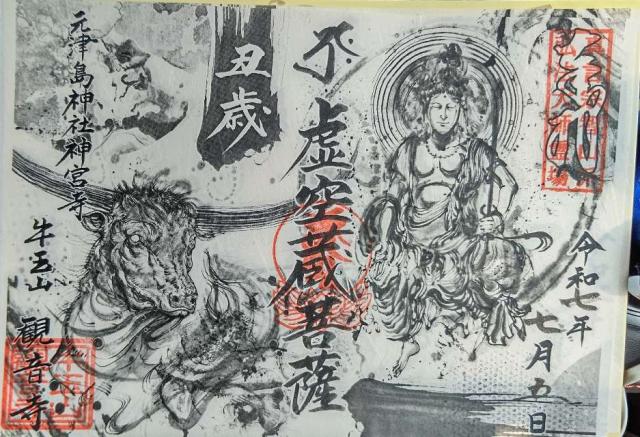 令和七年
七月五日
虚空蔵菩薩
丑歳
元津島神社神宮寺
牛玉山
観音寺